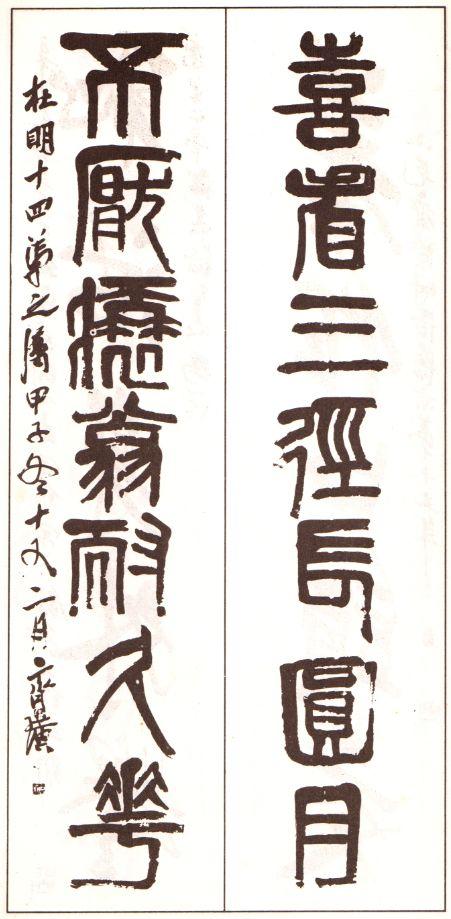 喜看三徑長圓月
不厭翁耐久花
明十四弟之屬甲子冬十又二月齊璜